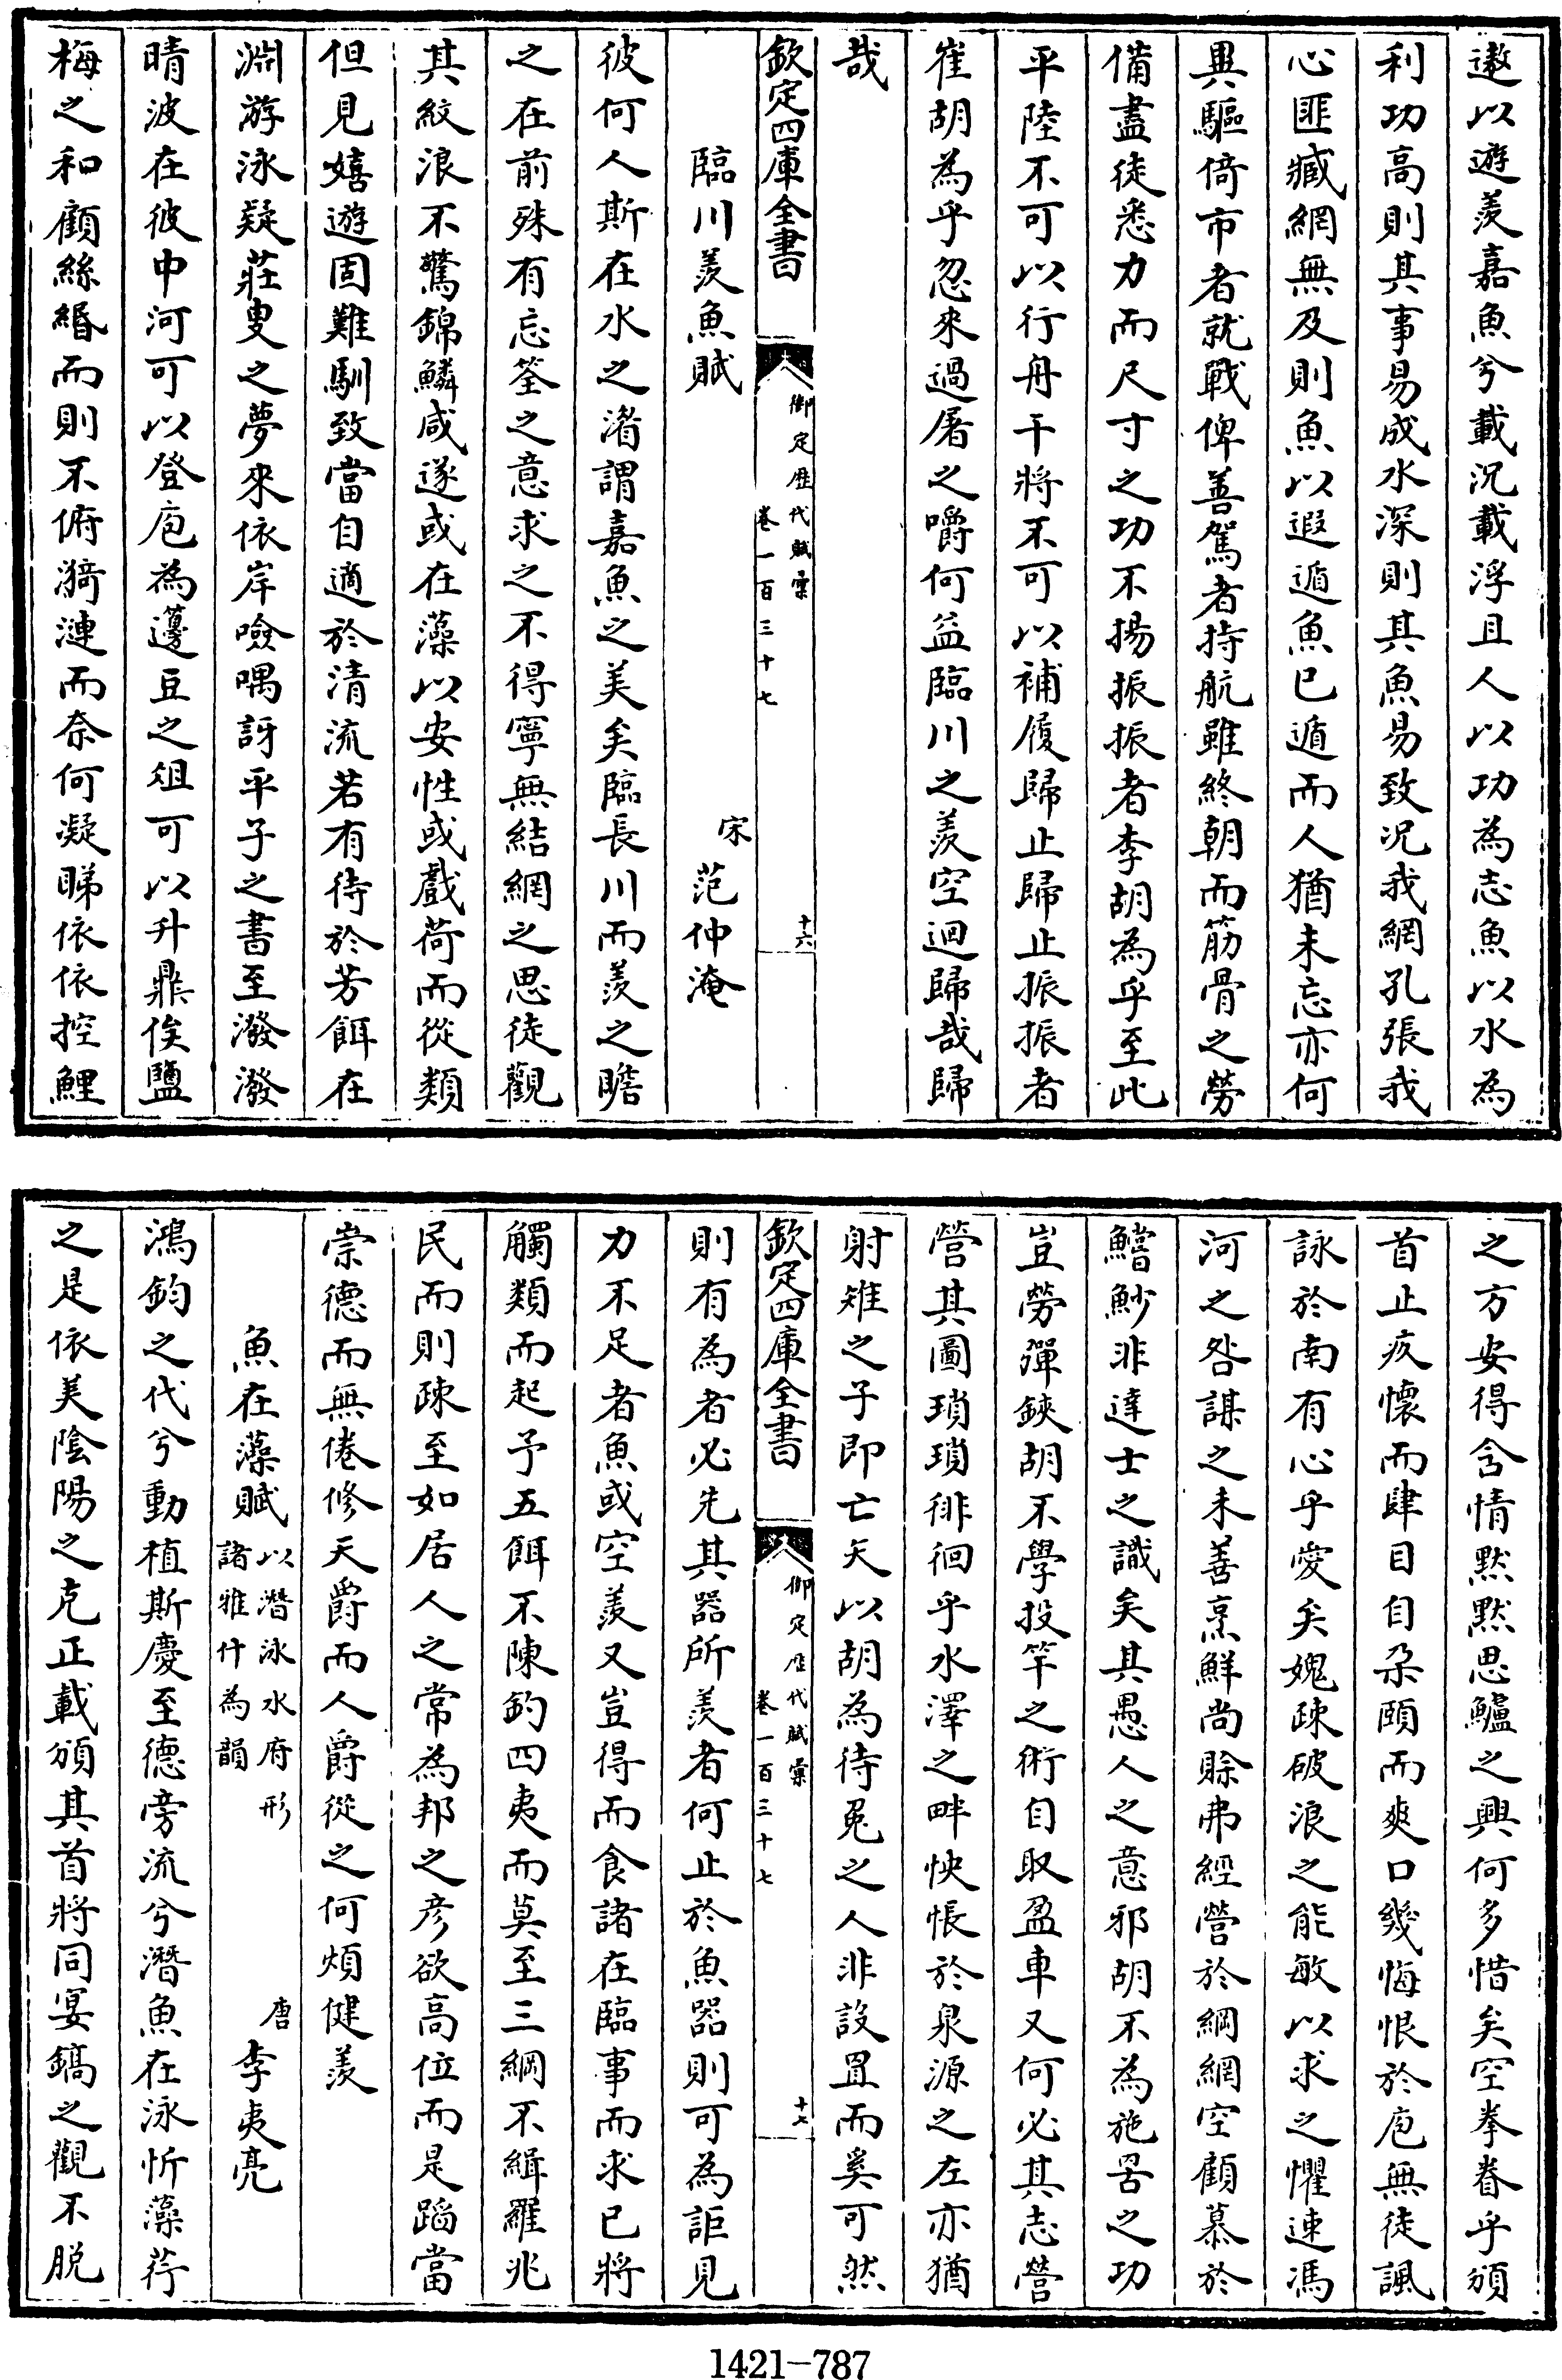 遨以遊羨嘉魚兮載沉載浮且人以功為志魚以水為
利功高則其事易成水深則其魚易致况我網孔張我
心匪臧網無及則魚以遐遁魚已遁而人猶未忘亦何
異驅倚市者就戰俾善駕者持航雖終朝而筋骨之勞
備盡徒悉力而尺寸之功不揚振振者李胡為乎至此
平陸不可以行舟干將不可以補履歸止歸止振振者
崔胡為乎忽來過屠之嚼何益臨川之羨空迴歸哉歸
哉
欽定四庫全書
御定歷代賦彙
卷一百三十七
十六
臨川羨魚賦
宋范仲淹
彼何人斯在水之湄謂嘉魚之美矣臨長川而羨之瞻
之在前殊有忘筌之意求之不得寧無結網之思徒觀
其紋浪不驚錦鱗咸遂或在藻以安性或戲荷而從類
但見嬉遊固難馴致當自適於清流若有待於芳餌在
淵游泳疑莊叟之夢來依岸噞喁訝平子之書至潑潑
晴波在彼中河可以登庖為籩豆之俎可以升鼎俟鹽
梅之和顧絲緡而則不俯漪漣而奈何凝睇依依控鯉
之方安得含情默默思鱸之興何多惜矣空拳眷乎頒
首止疚懷而肆目自朶頤而爽口幾悔恨於庖無徒諷
詠於南有心乎愛矣媿疎破浪之能敏以求之懼速馮
河之咎謀之未善烹鮮尚賒弗經營於綱網空顧慕於
鱨魦非達士之識矣其愚人之意邪胡不為施罟之功
豈勞彈鋏胡不學投竿之術自取盈車又何必其志營
營其圖瑣瑣徘徊乎水澤之畔怏悵於泉源之左亦猶
射雉之子即亡矢以胡為待兎之人非設罝而奚可然
欽定四庫全書
御定歷代賦彙
卷一百三十七
十七
則有為者必先其器所羨者何止於魚器則可為詎見
力不足者魚或空羨又豈得而食諸在臨事而求已將
觸類而起予五餌不陳釣四夷而莫至三綱不緝羅兆
民而則疎至如居人之常為邦之彦欲高位而是蹈當
崇德而無倦修天爵而人爵從之何煩健羨
魚在藻賦以潛泳水府形諸雅什為韻
唐李夷亮
鴻鈞之代兮動植斯慶至德旁流兮潛魚在泳忻藻荇
之是依美陰陽之克正載頒其首將同宴鎬之觀不脱
1421-787